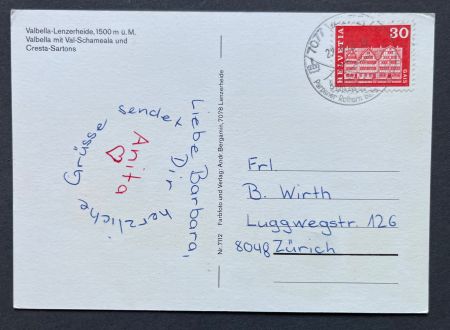 Valbella-Lenzerheide, 1500 m ü. M.
Valbella mit Val-Schameala und
Cresta-Sartons
HELVETIA
30
GAIS
7077
Parpaner Rothorn
Nr. 7112 Farbfoto und Verlag: Andr. Bergamin, 7078 Lenzerheide
Liebe Barbara,
herzliche Grüsse sendet Dir
Anita
Frl.
B. Wirth
Luggwegstr. 126
8048 Zürich